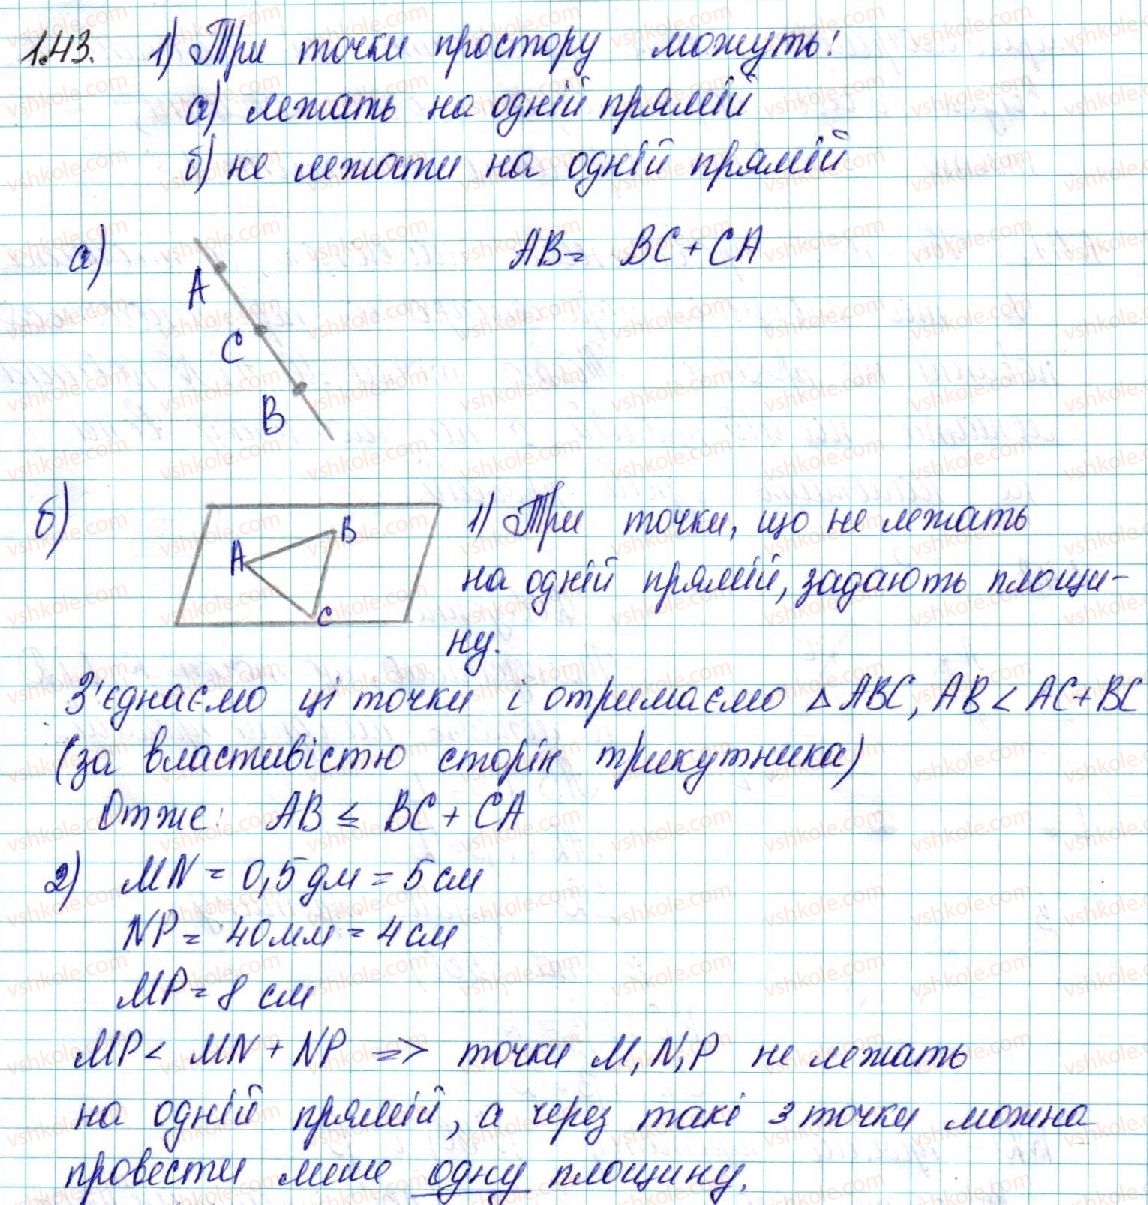 1.43. 1) Три точки простору можуть:
а) лежать на одній прямій
б) не лежати на одній прямій
а) AB = BC + CA
A
C
B
б) 1) Три точки, що не лежать
A B C
на одній прямій, задають площи-
ну.
З'єднаємо ці точки і отримаємо △ABC, AB < AC + BC
(за властивістю сторін трикутника)
Отже: AB ≤ BC + CA
2) MN = 0,5 дм = 5 см
NP = 40 мм = 4 см
MP = 8 см
MP < MN + NP => точки M, N, P не лежать
на одній прямій, а через такі 3 точки можна
провести лише одну площину.